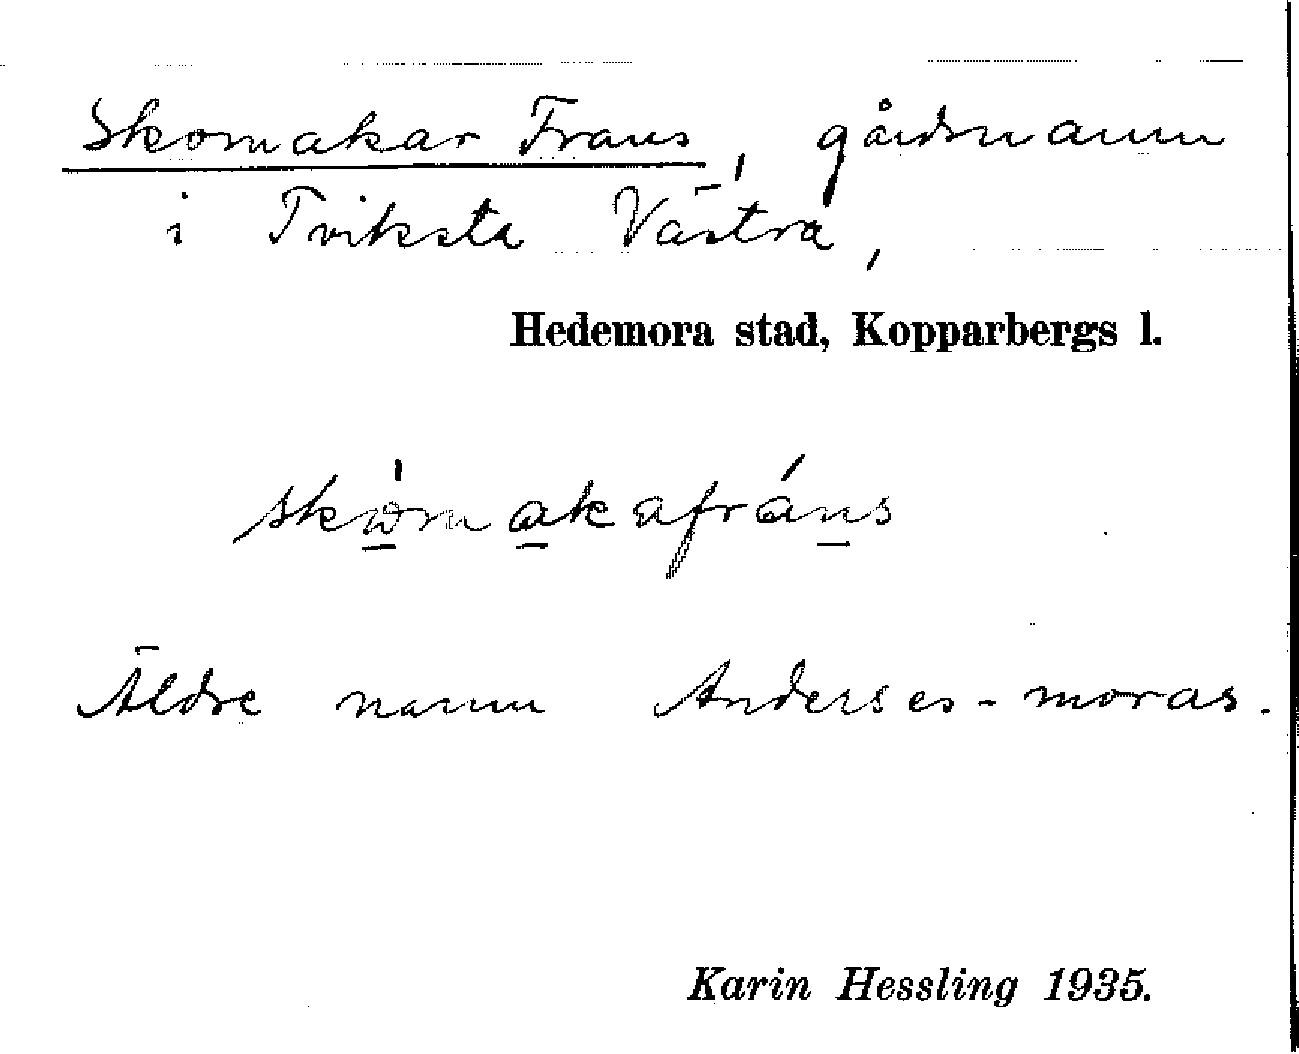 Skomakar Frans, gårdsnamn
i Tviksta Västra,
Hedemora stad, Kopparbergs l.
skòmakafráns
Äldre namn Anderses-moras.
Karin Hessling 1935.